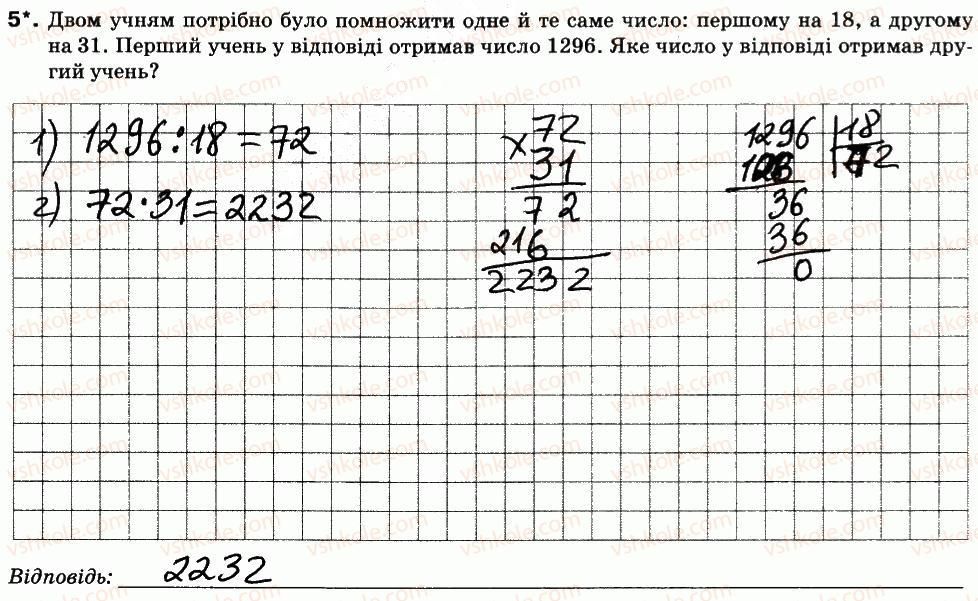 5*. Двом учням потрібно було помножити одне й те саме число: першому на 18, а другому
на 31. Перший учень у відповіді отримав число 1296. Яке число у відповіді отримав дру-
гий учень?
1) 1296:18=72
2) 72·31=2232
×72
31
72
216
2232
1296 18
72
36
36
0
Відповідь: 2232